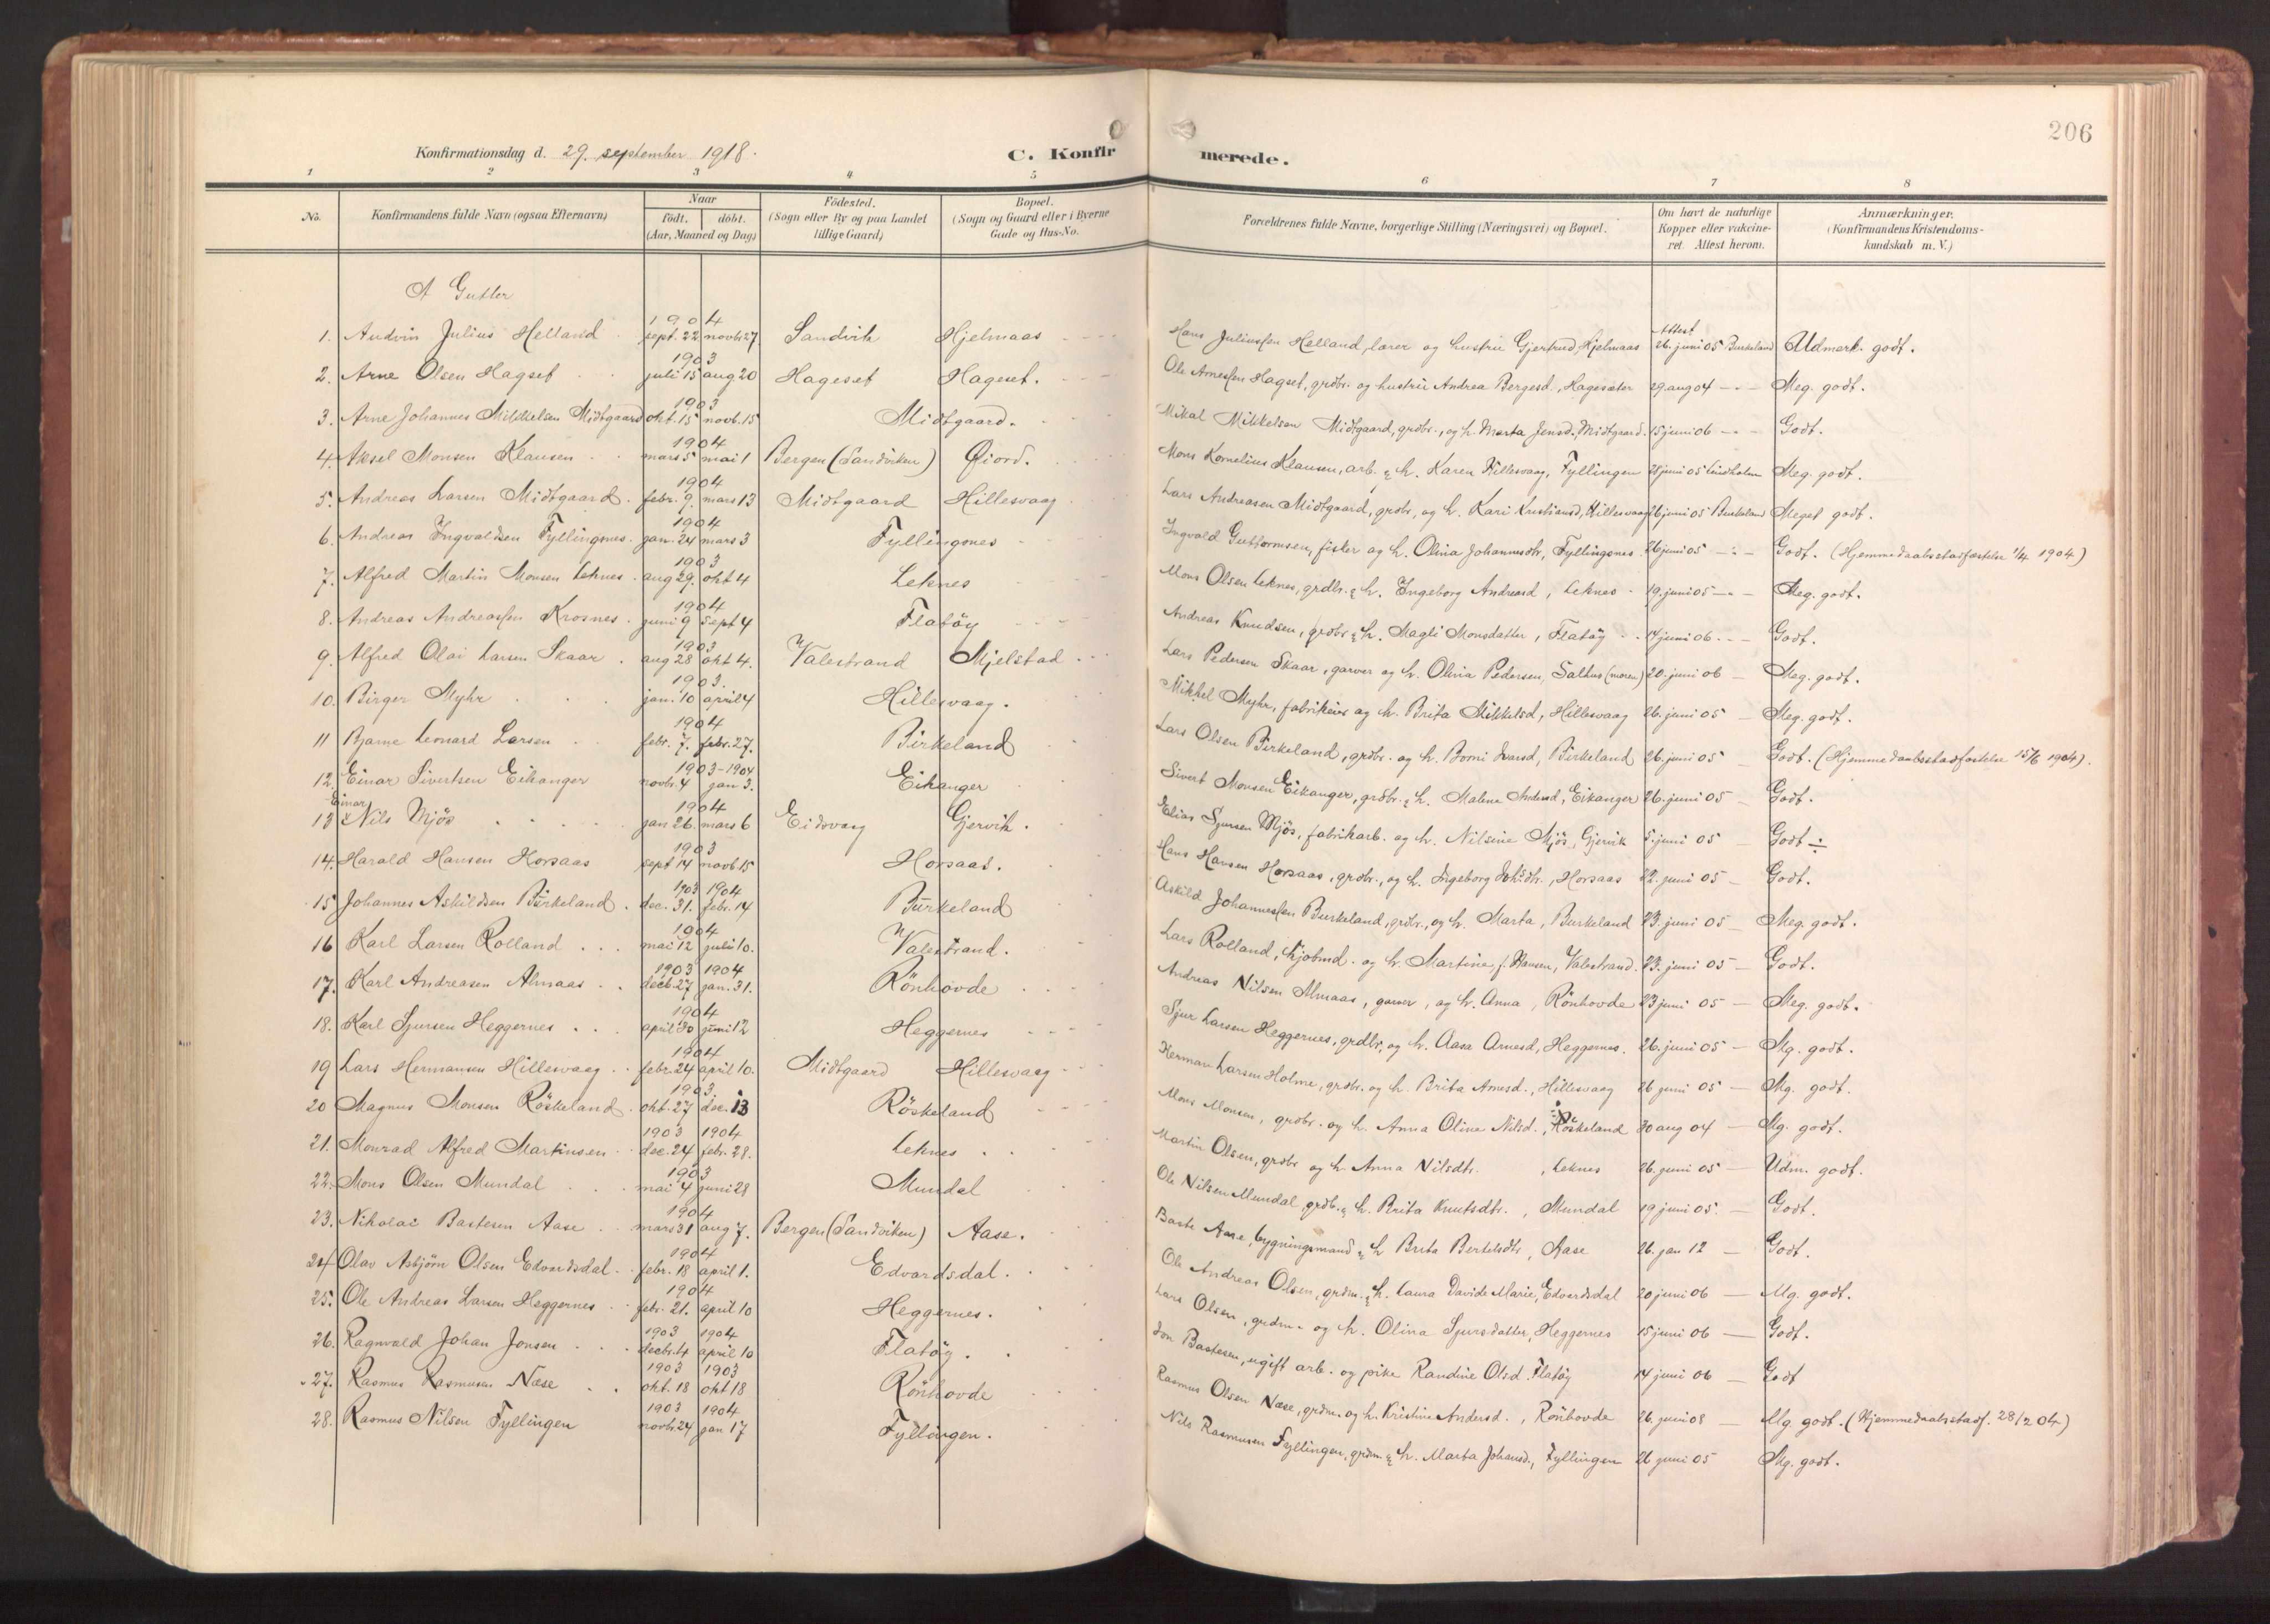 206
Konfirmationsdag d. 29. september 1918.
C. Konfirmerede.
1 2 3 4 5 6 7 8
No. | Konfirmandens fulde Navn (ogsaa Efternavn) | Naar født. døbt. (Aar, Maaned og Dag) | Fødested. (Sogn eller By og paa Landet tillige Gaard) | Bopæl. (Sogn og Gaard eller i Byerne Gade og Hus-No. | Forældrenes fulde Navne, borgerlige Stilling (Næringsvei) og Bopæl. | Om havt de naturlige Kopper eller vakcineret. Attest herom. | Anmærkninger. (Konfirmandens Kristendomskundskab m. V.)
A Gutter
1. Audvin Julius Helland 1904 sept. 22 novb. 27. Sandvik Hjelmaas Hans Juliussen Helland, lærer og hustru Gjertrud, Hjelmaas Attest 26. juni 05 Burkeland Udmerk. godt.
2. Arne Olsen Hagset 1903 juli 15 aug 20 Hageset Hageset. Ole Arnessen Hagset, grdbr. og hustru Andrea Bergesd., Hagesæter 29. aug 04 -"- Meg. godt.
3. Arne Johannes Mikkelsen Midtgaard 1903 okt. 15 novb. 15 Midtgaard. Mikal Mikkelsen Midtgaard, grdbr., og h. Marta Jensd., Midtgaard. 15 juni 06 -"- Godt.
4. Aksel Monsen Klausen 1904 mars 5 mai 1 Bergen (Sandviken) Mons Kornelius Klausen, arb. & h. Karen Hillesvaag, Fyllingen 25 juni 05 Lindholm Meg. godt.
5. Andreas Larsen Midtgaard 1904 febr. 9. mars 13 Midtgaard Hillesvaag Lars Andreasen Midtgaard, grdbr, og h. Kari Kristiansd, Hillesvaag 26 juni 05 Burkeland Meget godt.
6. Andreas Ingvaldsen Fyllingsnes. 1904 jan. 24 mars 3 Fyllingsnes Ingvald Guttormsen, fisker og h. Olina Johannesdtr, Fyllingsnes 26 juni 05 -"- Godt. (Hjemmedaabsstadfæstelse 1/4 1904)
7. Alfred Martin Monsen Leknes. 1903 aug 29. okt 4 Leknes Mons Olsen Leknes, grdbr. & h. Ingeborg Andreasd, Leknes 19. juni 05 -"- Meg. godt.
8. Andreas Andreassen Krosnes. 1904 juni 9 sept 4 Flatöy Andreas Knudsen, grdbr & h. Magli Monsdatter, Flatöy 14 juni 06 -"- Godt.
9. Alfred Olai Larsen Skaar. 1903 aug 28 okt 4. Valestrand Mjelstad Lars Pedersen Skaar, garver og h. Olina Pedersen, Salhus (moren) 20. juni 06 - Meg. godt.
10. Birger Myhr 1903. jan. 10 april 4 Hillesvaag. Mikkel Myhr, fabrikeier og h. Brita Mikkelsd, Hillesvaag 26. juni 05 - Meg. godt.
11 Bjarne Leonard Larsen 1904 febr. 7. febr. 27. Birkeland Lars Olsen Birkeland, grdbr. og h. Borni Larsd, Birkeland 26. juni 05 Godt. (Hjemmedaabsstadfæstelse 15/6 1904).
12. Einar Sivertsen Eikanger 1903-1904 novbr. 4 jan 3. Eikanger Sivert Monsen Eikanger, grdbr. & h. Malene Andersd, Eikanger 26. juni 05 - Godt.
13 Einar x Nils Mjös 1904 jan 26. mars 6 Eidsvaag Gjervik. Elias Sjursen Mjös, fabrikarb. og h. Nilsine Mjös, Gjervik 5. juni 05 - Godt ÷
14. Harald Hansen Horsaas 1903 sept 14 novb. 15 Horsaas. Hans Hansen Horsaas, grdbr., og h. Ingeborg Johsdtr., Horsaas 22. juni 05 - Godt.
15 Johannes Askildsen Burkeland. 1903 1904 dec. 31. febr. 14 Burkeland Askild Johannessen Burkeland, grdbr., og h. Marta, Burkeland 23. juni 05 - Meg. godt.
16 Karl Larsen Rolland 1904 mai 12 juli 10. Valestrand. Lars Rolland, kjøbmd. og h. Martine f. Hansen, Valestrand. 23. juni 05 - Godt.
17. Karl Andreasen Almaas 1903 1904 decb. 27 jan. 31. Rönhovde Andreas Nilsen Almaas, garver, og h. Anna, Rönhovde 23 juni 05 - Meg. godt.
18. Karl Sjursen Heggernes 1904 april 30 juni 12 Heggernes Sjur Larsen Heggernes, grdbr, og h. Aasa Arnesd, Heggernes. 26. juni 05 - Mg. godt.
19 Lars Hermansen Hillesvaag 1904 febr. 24 april 10. Midtgaard Hillesvaag Herman Larsen Holme, grdbr. og h. Brita Arnesd., Hillesvaag 26 juni 05 - Mg. godt.
20 Magnus Monsen Röskeland 1903 okt. 27 dec. 13 Röskeland Mons Monsen, grdbr. og h. Anna Oline Nilsd., Röskeland 30 aug 04 - Mg. godt.
21. Monrad Alfred Martinsen 1903 1904 dec. 24 febr. 28. Leknes Martin Olsen, grdbr og h. Anna Nilsdtr., Leknes 26. juni 05 - Udm. godt.
22. Mons Olsen Mundal 1903 mai 4 juni 28 Mundal Ole Nilsen Mundal grdb. & h. Brita Knutsdtr., Mundal 19 juni 05. - Godt.
23. Nikolai Bastesen Aase 1904 mars 31 aug 7. Bergen (Sandviken) Aase. Baste Aase, bygningsmand & h Brita Bertelsdtr, Aase 26. jan 12 - Godt.
24 Olav Asbjörn Olsen Edvardsdal 1904 febr. 18 april 1. Edvardsdal. Ole Andreas Olsen, grdm. & h. Laura Davide Marie, Edvardsdal 20 juni 06 - Mg. godt.
25. Ole Andreas Larsen Heggernes 1904 febr. 21. april 10 Heggernes. Lars Olsen, grdm. og h. Olina Sjursdatter, Heggernes 15 juni 06 - Godt.
26. Ragnvald Johan Jonsen 1903 1904 decbr. 4 april 10 Flatöy. Jon Bastesen, ugift arb. og pike Randine Olsd. Flatöy 14 juni 06 - Godt
27. Rasmus Rasmusen Næse 1903 1903 okt. 18 okt 18 Rönhovde Rasmus Olsen Næse, grdm. og h. Kristine Andersd., Rönhovde 26. juni 08 - Mg godt. (Hjemmedaabsstadf. 28/2 04)
28. Rasmus Nilsen Fyllingen 1903 1904 novb. 24 jan 17 Fyllingen. Nils Rasmusen Fyllingen, grdm. & h. Marta Johansd., Fyllingen 26 juni 05 Mg. godt.